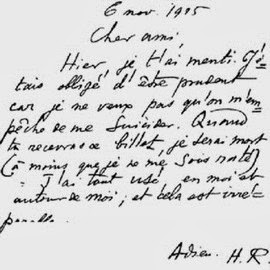 6 nov. 1915
Cher ami,
Hier, je t'ai menti. J'é-
tais obligé d'être prudent
car je ne veux pas qu'on m'em
pêche de me suicider. Quand
tu recevras ce billet, je serai mort
(à moins que je me sois raté)
J'ai tout usé en moi et
autour de moi; et cela est irré-
parable.
Adieu. H. R.